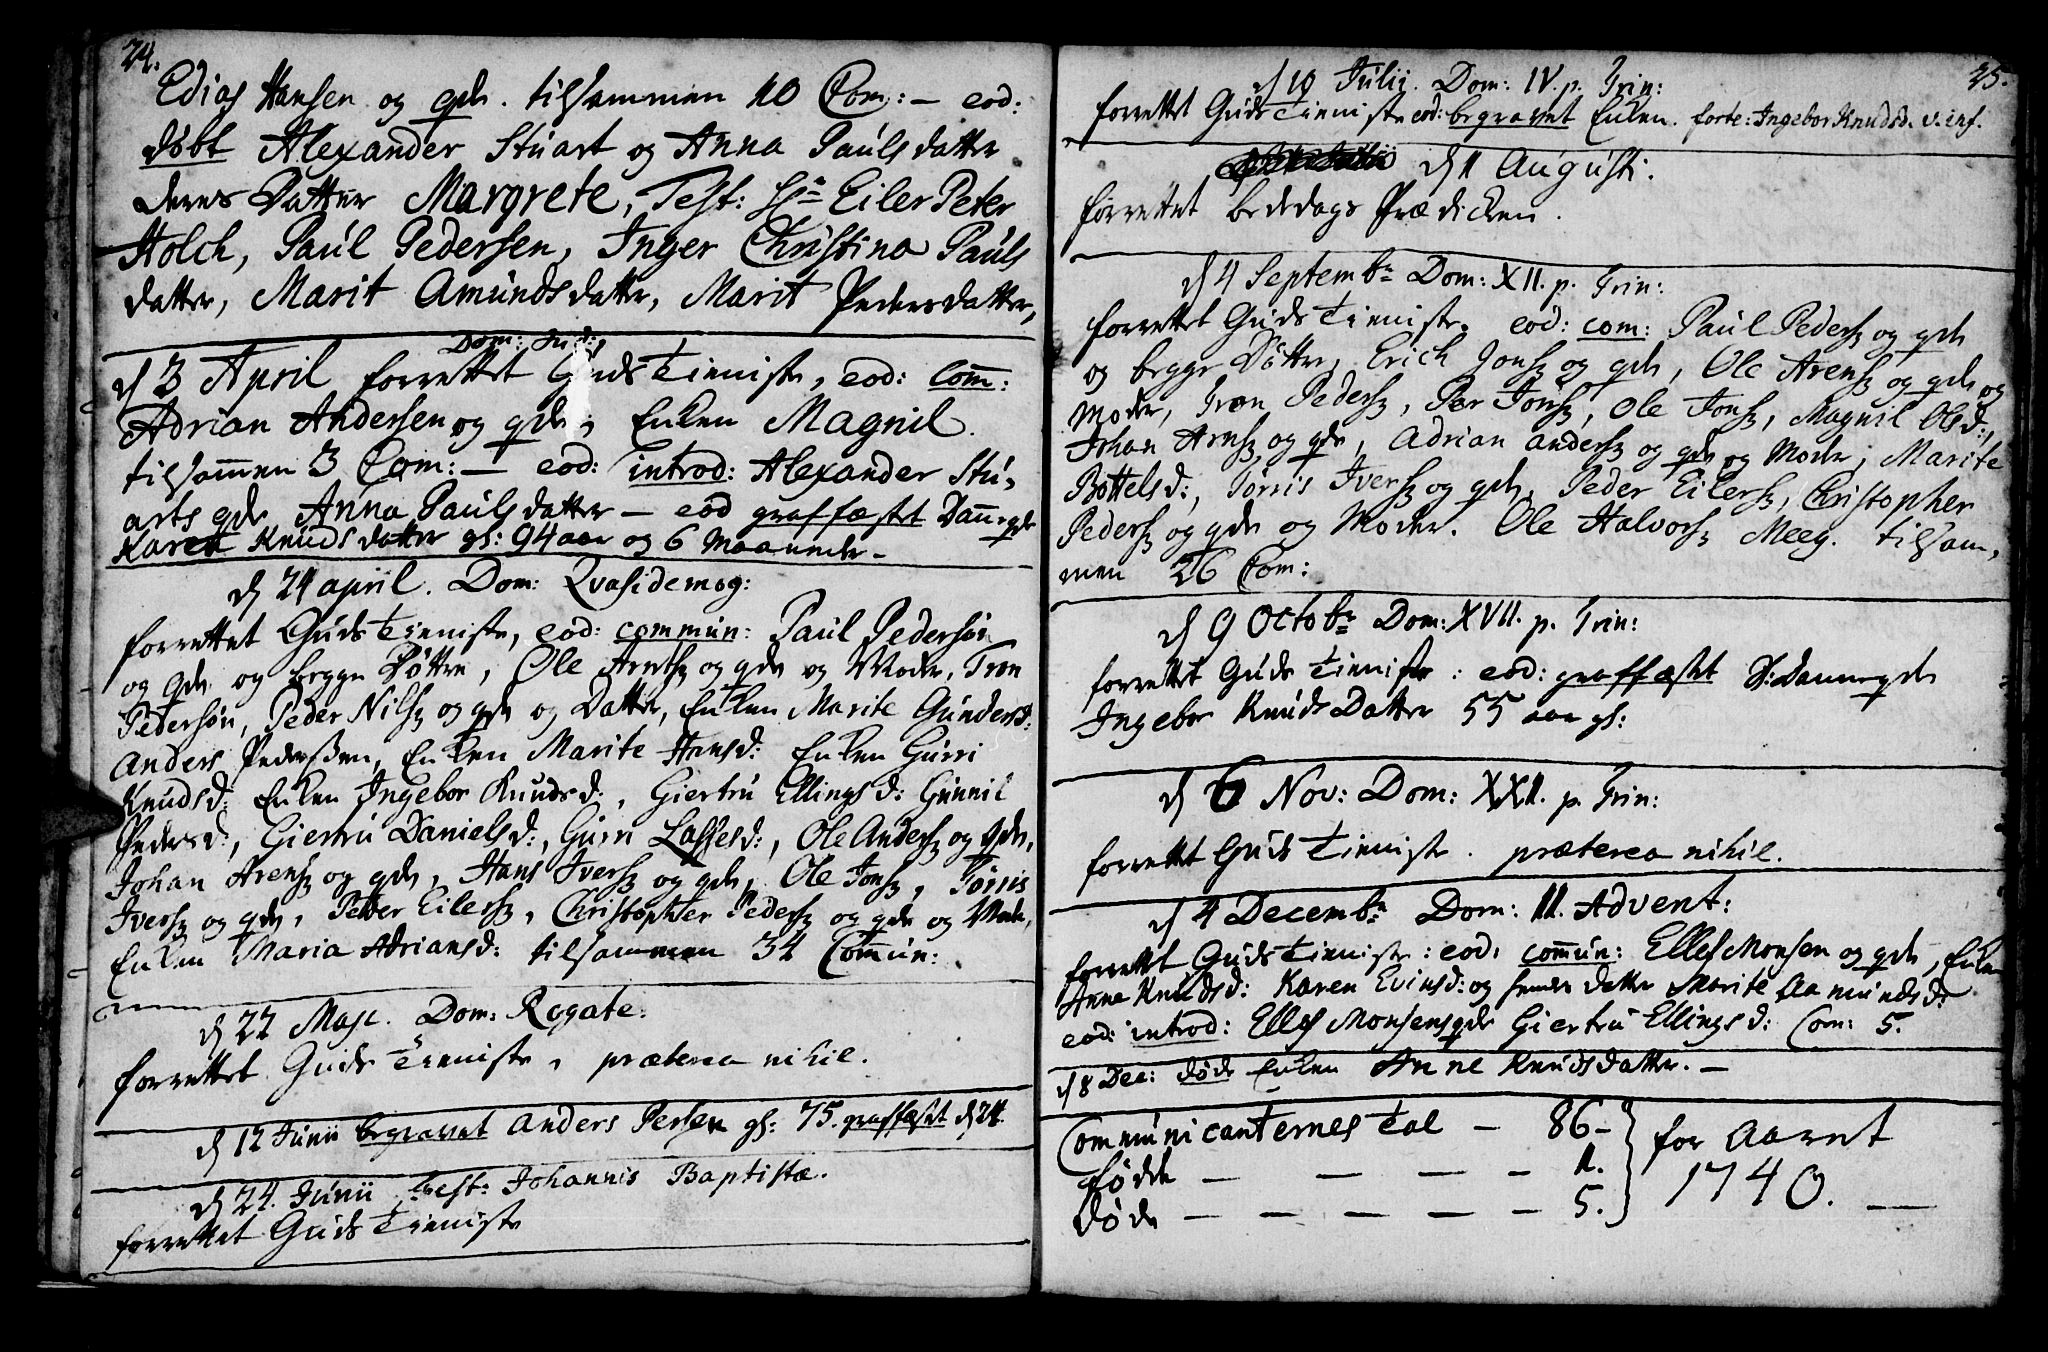 24.
Edias Hansen og qde. tilsammen 10 Com: — eod:
døbt Alexander Stuart og Anna Pauls datter
deres Datter Margrete, Test: Hr Eiler Peter
Holck, Paul Pedersen, Inger Christina Pauls
datter, Marit Amunds datter, Marit Peders datter,
Dom: Jud:
d 3 April forrettet Guds Tieniste, eod: Com:
Adrian Andersen og qde, Enken Magnil
tilsammen 3 Com: — eod: introd: Alexander Stu,
arts qde Anna Pauls datter — eod graffæstet Danneqde
Karen Knuds datter gl: 94 aar og 6 Maaneder —
d 24 april. Dom: Qvasidemog:
forrettet Guds Tieniste, eod: commun: Paul Pedersøn
og qde og begge Døttre, Ole Arentsz og qde og Moder, Tron
Pedersøn, Peder Nilsz og qde og Datter, Enken Marite Gundersd:
Anders Pederssen, Enken Marite Hansd: Enken Gurri
Knudsd: Enken Ingebor Knudsd:, Giertru Ellingsd: Gunnil
Pedersd:, Giertru Danielsd:, Gurri Lassesd:, Ole Andersz og qde,
Johan Arensz og qde, Hans Iversz og qde, Ole Jonsz, Törris
Iversz og qde, Peder Eilersz, Christopher Pedersz og qde og Moder,
Enken Maria Adriansd: tilsammen 34 Commun:
d 22 Maje. Dom: Rogate:
forrettet Guds Tieniste, præterea nihil.
d 12 Junii begravet Anders Persen gl: 75. graffæstet d 24.
d 24 Junii, Fest: Johannis Baptistæ.
forrettet Guds Tieniste
25.
d 10 Julii. Dom: IV. p. Trin:
forrettet Guds Tieniste eod: begravet Enken. forte: Ingebor Knudsd. v. inf.
d 11 Augusti.
forrettet bededags Prædicken.
d 4 Septembr Dom: XII. p. Trin:
forrettet Guds Tieniste. eod: com: Paul Pedersz og qde
og begge Døtter, Erich Jonsz og qde, Ole Arensz og qde og
Moder, Tron Pedersz, Per Jonsz, Ole Jonsz, Magnil Olsd:,
Johan Arnsz og qde, Adrian andersz og qde og Moder, Marite
Bottelsd:, Törris Iversz og qde, Peder Eilersz, Christopher
Pedersz og qde og Moder. Ole Halvorsz Meeg. tilsam,
men 26 Com:
d 9 Octobr Dom: XVII. p. Trin:
forrettet Guds Tieniste: eod: graffæstet S: Danneqde
Ingebor Knuds Datter 55 aar gl:
d 6 Nov: Dom: XXII. p. Trin:
forrettet Guds Tieniste. præterea nihil.
d 4 Decembr Dom: II. Advent:
forrettet Guds Tieniste: eod: commun: Ellef Monsen og qde, Enken
Anne Knudsd: Karen Evinsd: og hendes datter Marite Aamundsd:
eod: introd: Ellef Monsens qde Giertru Ellingsd: Com: 5.
d 8 Dec: døde Enken Anne Knuds datter. —
Communicanternes Tal — 86 — for Aaret
fødde — — — — 2. 1740. —
døde — — — — — 5.